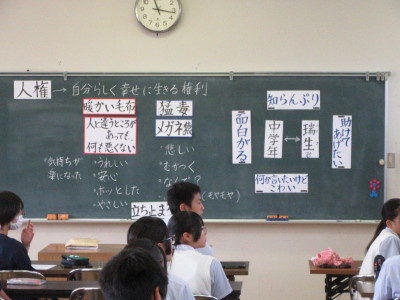 人権 → 自分らしく幸せに生きる権利
暖かい毛布
人と違うところが
あって
何も悪くない
気持ちが
楽になった
・うれしい
・安心
・ホッとした
・やさしい
猛毒
メガネ猿
・悲しい
・むかつく
もやもや
立ち止ま
知らんぷり
面白がる
中学年
↔
瑞生
助けて
あげたい
何か言いたいけど
こわい